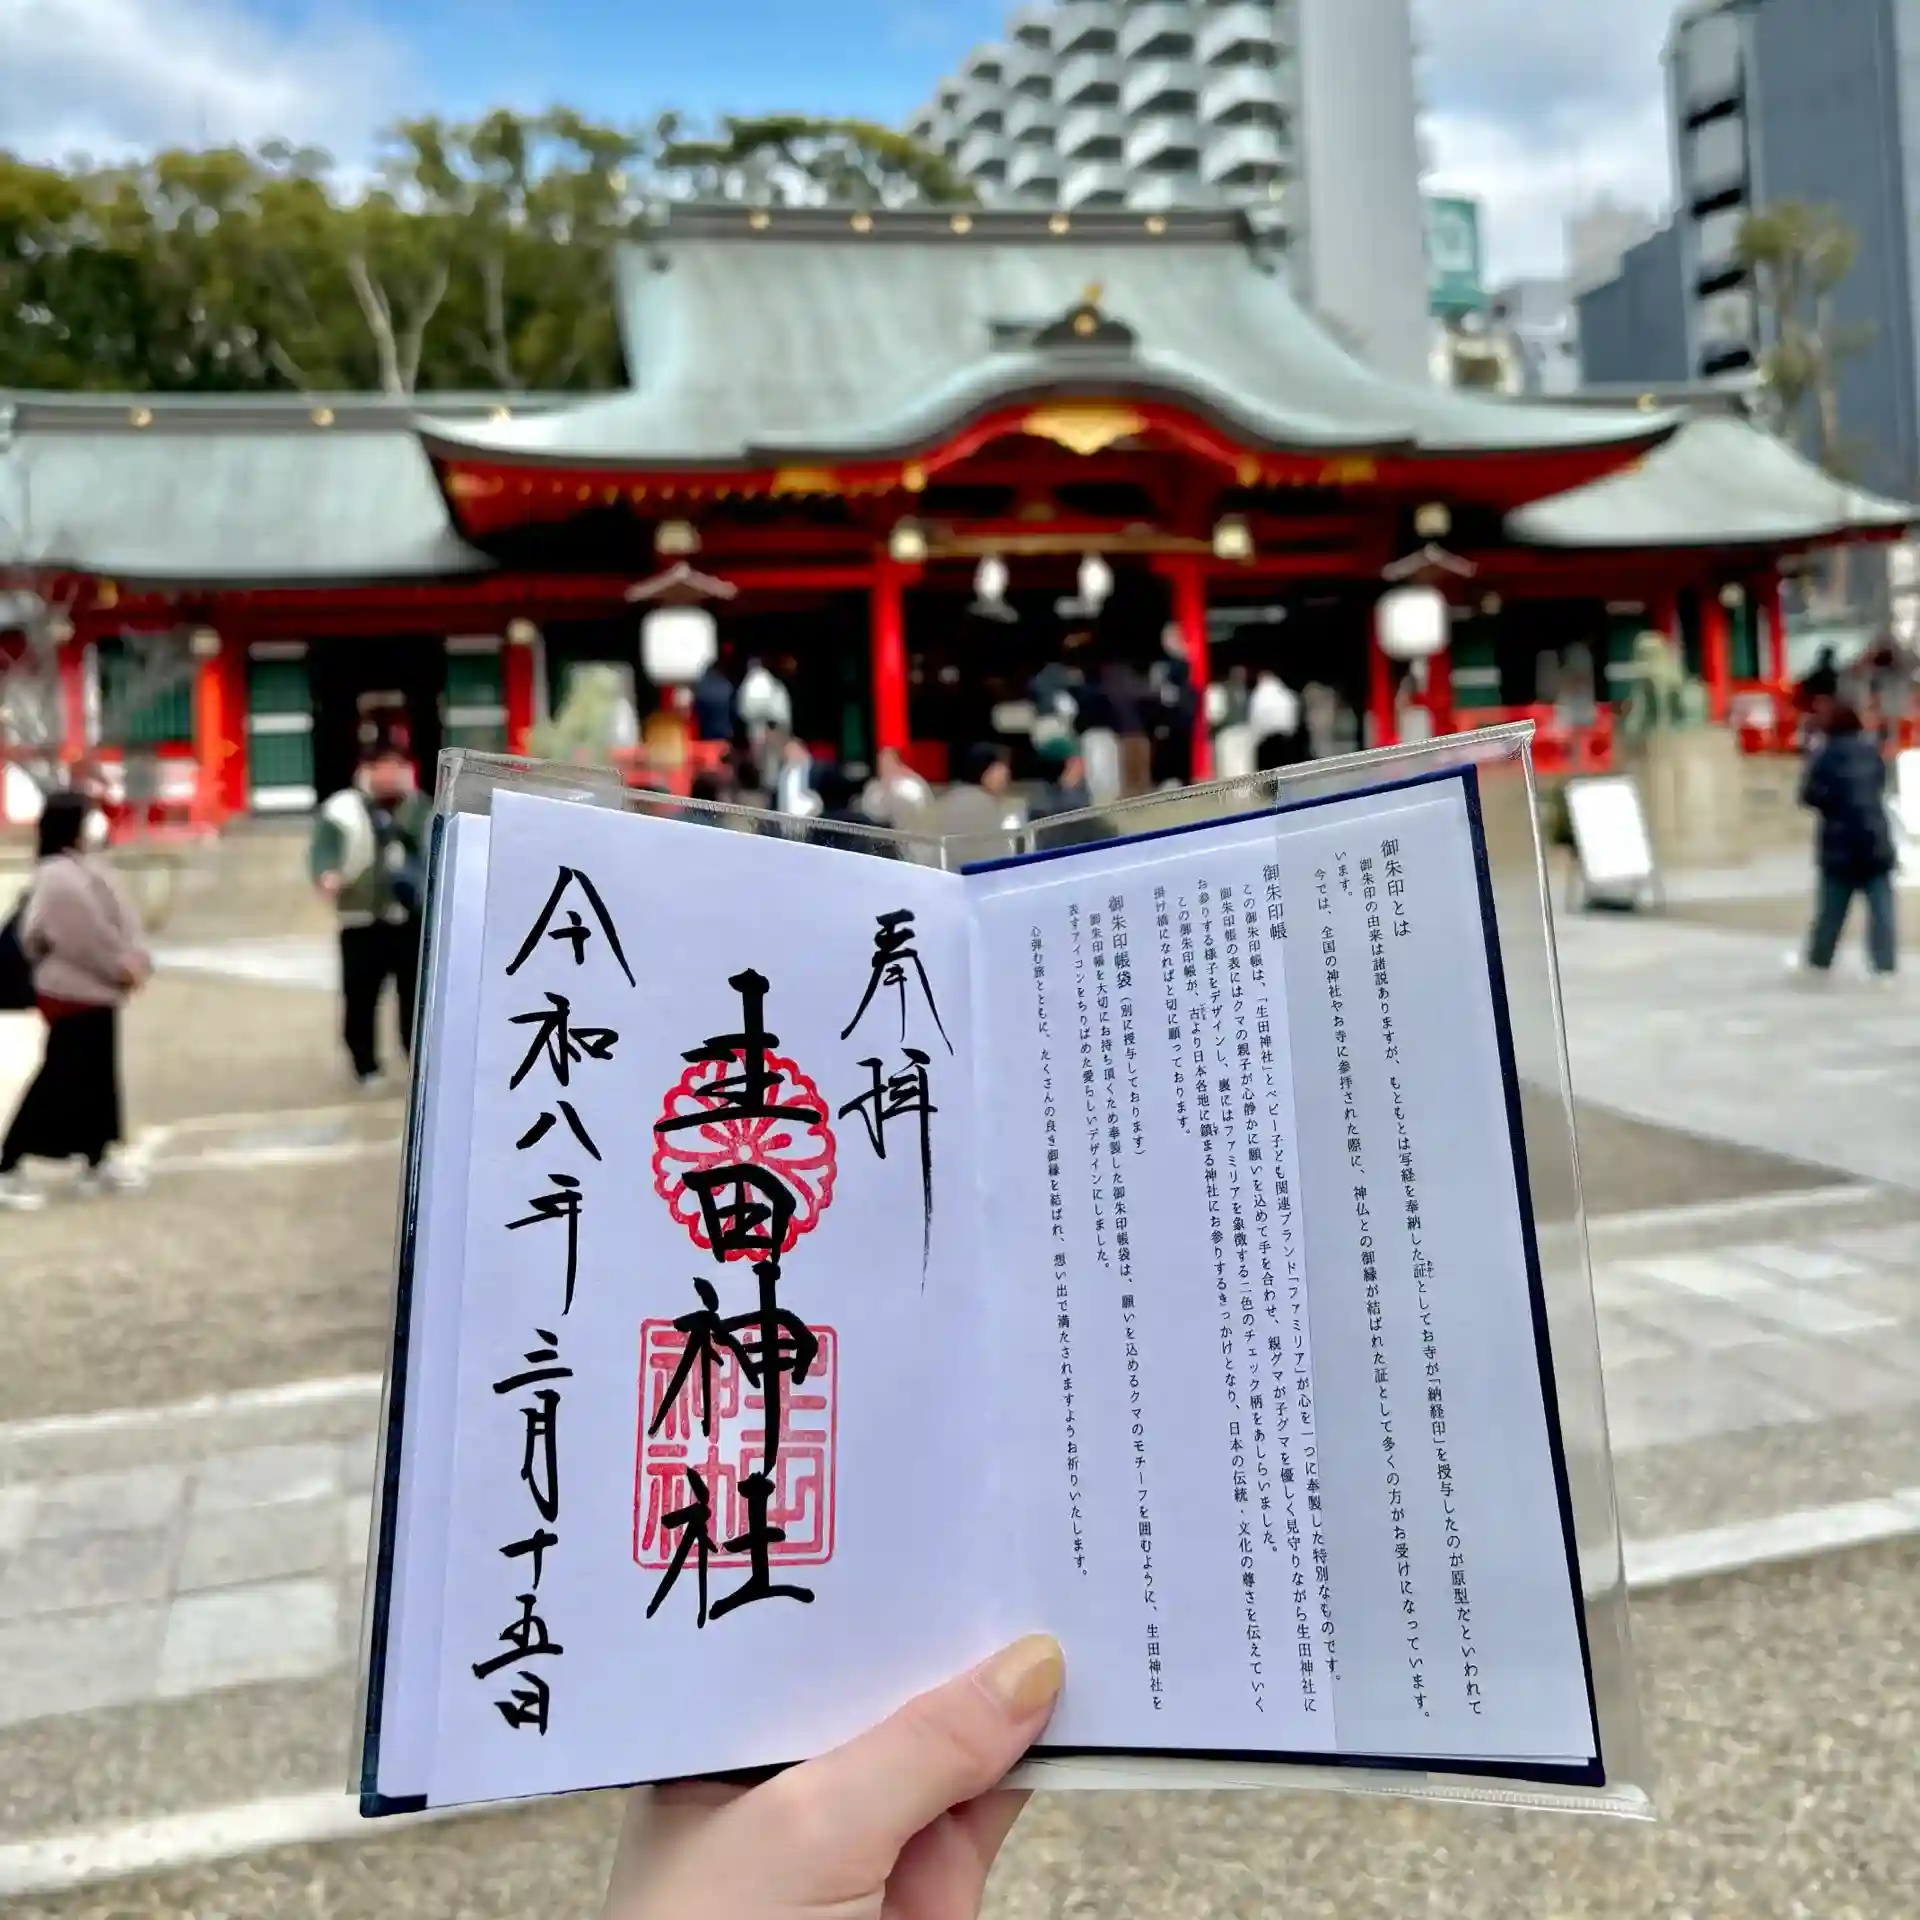 御朱印とは
御朱印の由来は諸説ありますが、もともとは写経を奉納した証としてお寺が「納経印」を授与したのが原型だといわれて
います。
今では、全国の神社やお寺に参拝された際に、神仏との御縁が結ばれた証として多くの方がお受けになっています。
御朱印帳
この御朱印帳は、「生田神社」とベビー子ども関連ブランド「ファミリア」が心を一つに奉製した特別なものです。
御朱印帳の表にはクマの親子が心静かに願いを込めて手を合わせ、親グマが子グマを優しく見守りながら生田神社に
お参りする様子をデザインし、裏にはファミリアを象徴する二色のチェック柄をあしらいました。
この御朱印帳が、古より日本各地に鎮まる神社にお参りするきっかけとなり、日本の伝統・文化の尊さを伝えていく
掛け橋になればと切に願っております。
御朱印帳袋（別に授与しております）
御朱印帳を大切にお持ち頂くため奉製した御朱印帳袋は、願いを込めるクマのモチーフを囲むように、生田神社を
表すアイコンをちりばめた愛らしいデザインにしました。
心弾む旅とともに、たくさんの良き御縁を結ばれ、想い出で満たされますようお祈りいたします。
奉拝
生田神社
生田神社
令和八年三月十五日